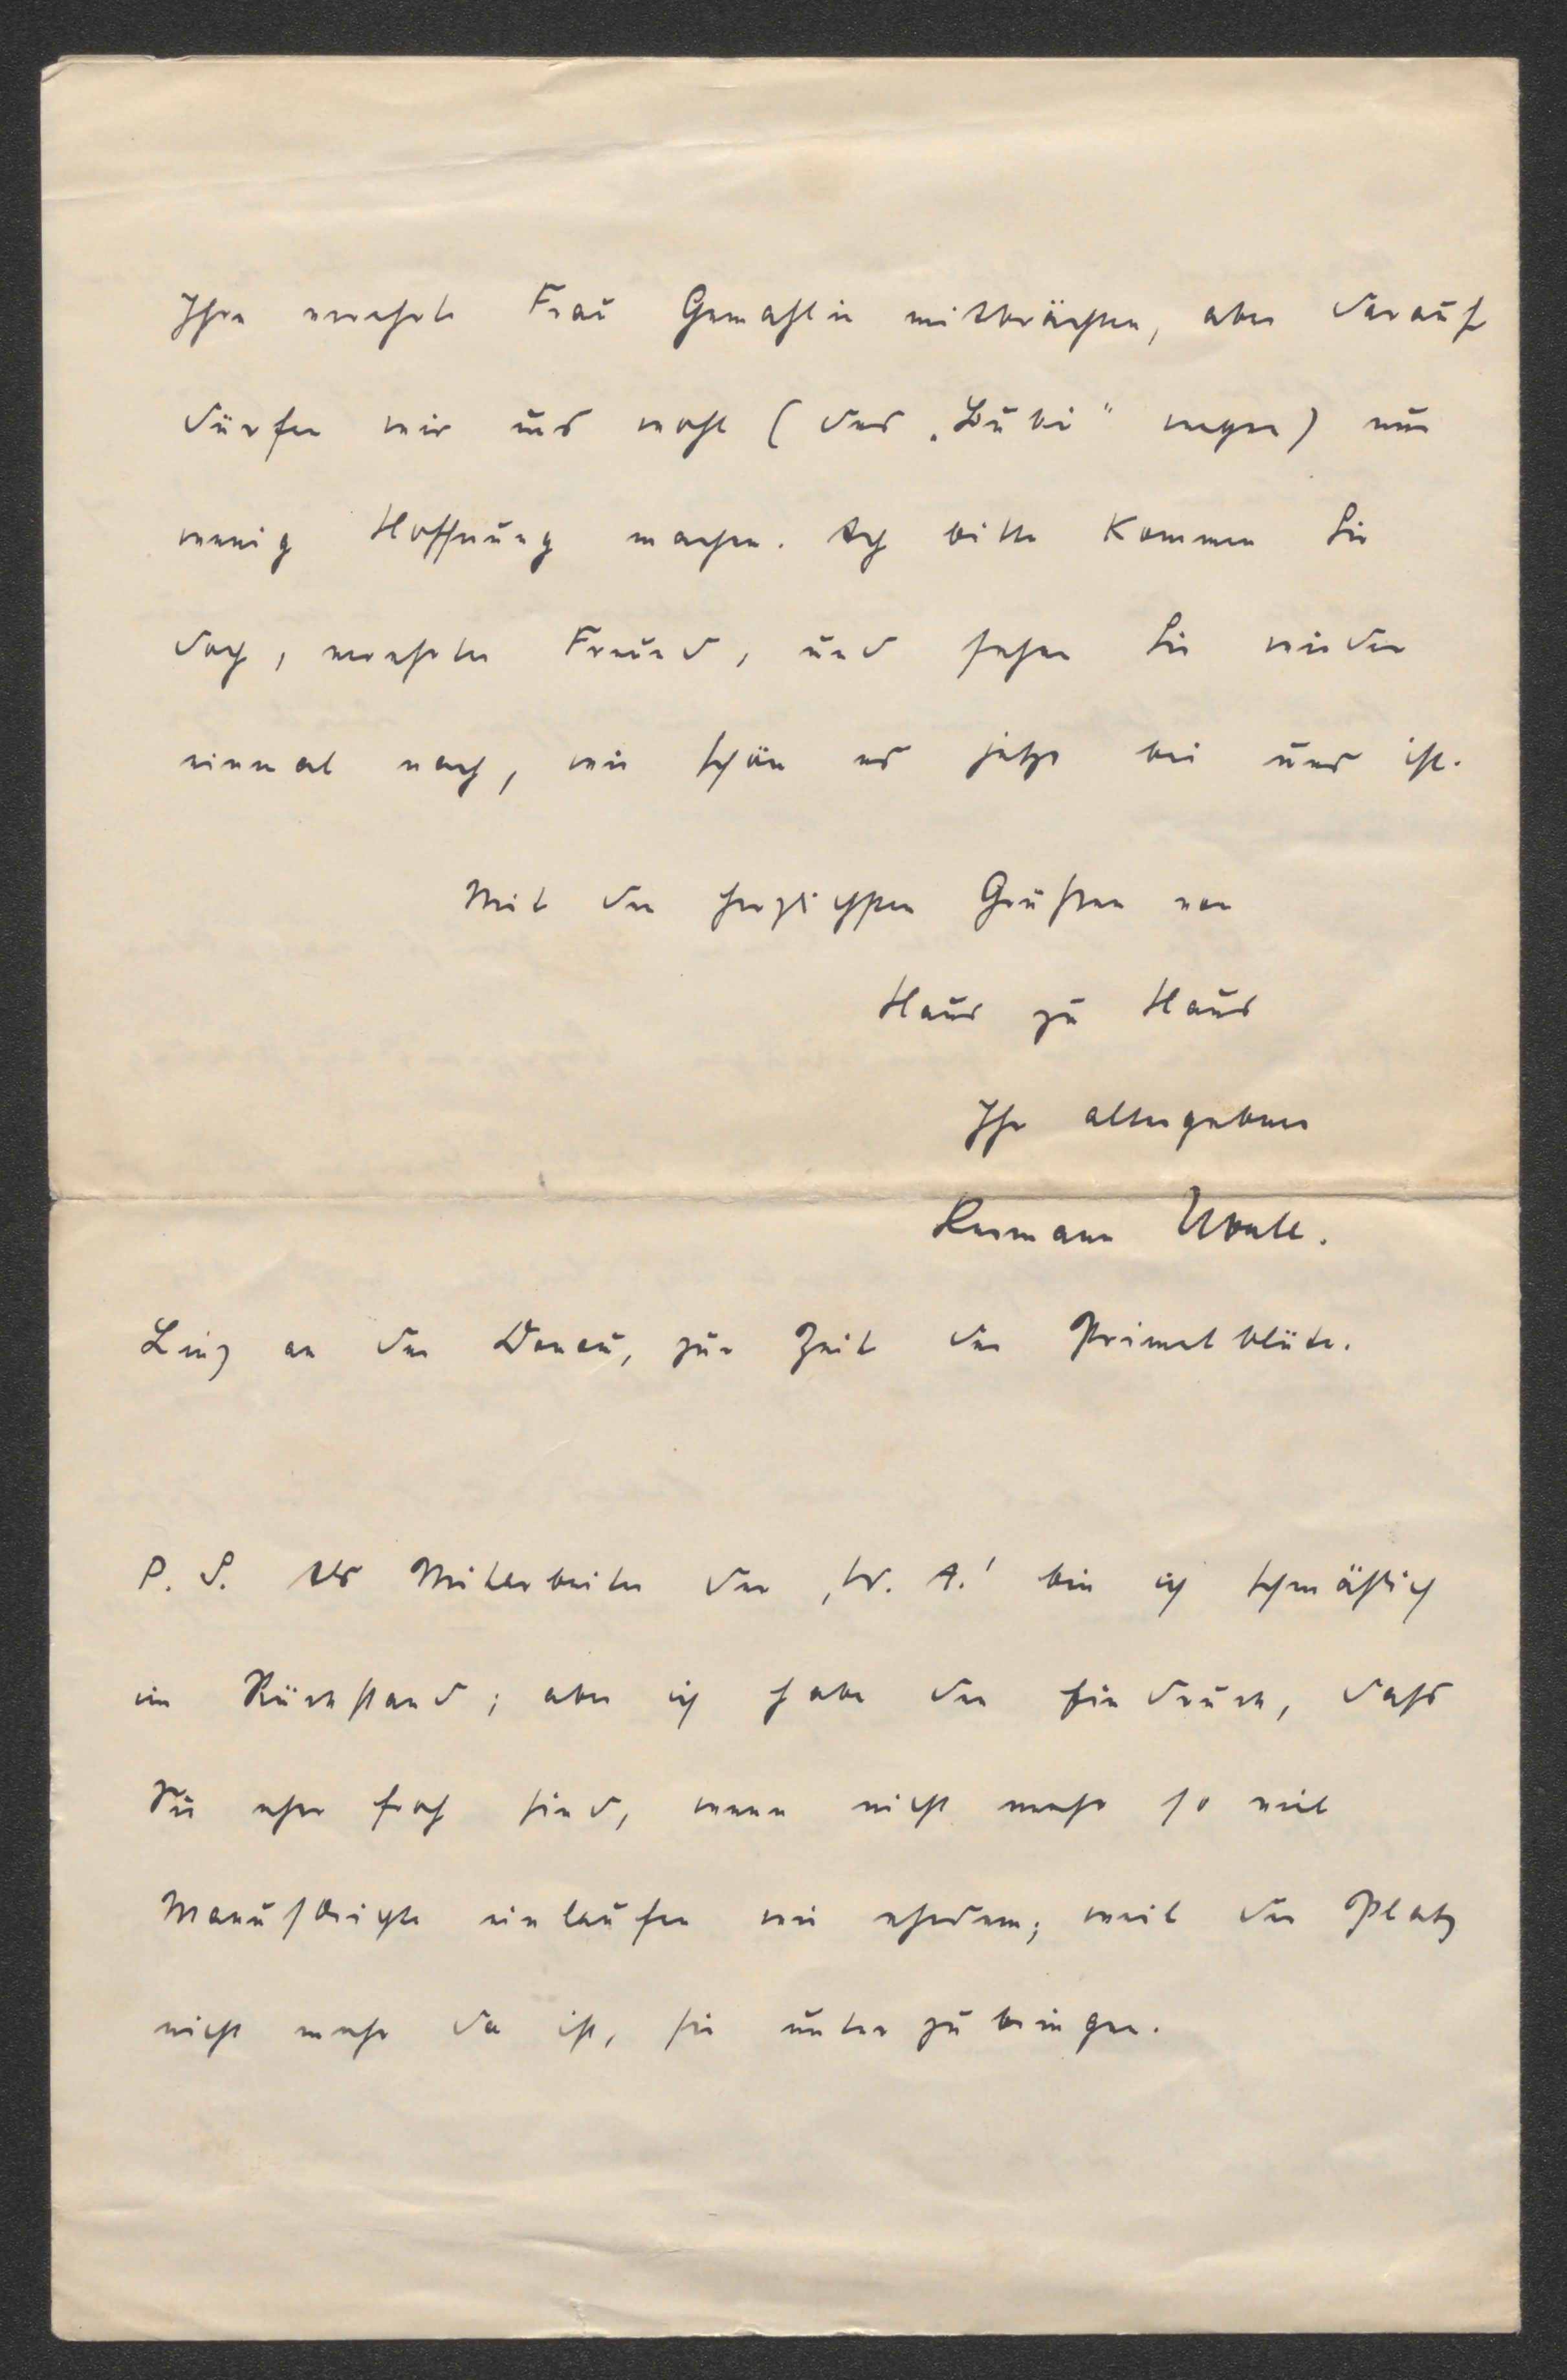 Ihre verehrte Frau Gemahlin mitbrächten, aber darauf
dürfen wir uns wohl (des „Bubi“ wegen) nur
wenig Hoffnung machen. Ach bitte kommen Sie
doch, verehrter Freund, und sehen Sie wieder
einmal nach, wie schön es jetzt bei uns ist.
Mit den herzlichsten Grüßen von
Haus zu Haus
Ihr altergebener
Hermann Ubell.
Linz an der Donau, zur Zeit der Primelblüte.
P. S. Als Mitarbeiter der ‚W. A.‘ bin ich schmählich
im Rückstand; aber ich habe den Eindruck, dass
Sie eher froh sind, wenn nicht mehr so viel
Manuskripte einlaufen wie ehedem; weil der Platz
nicht mehr da ist, sie unter zu bringen.